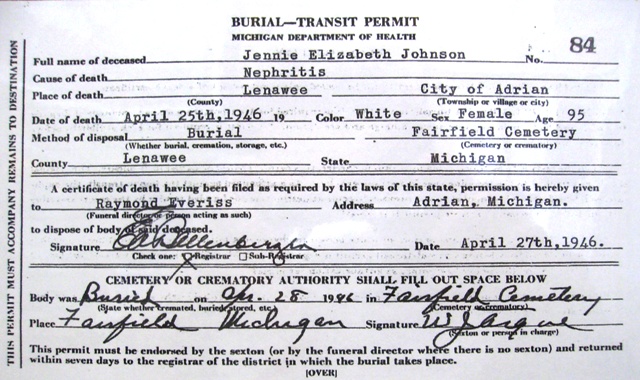 BURIAL—TRANSIT PERMIT
MICHIGAN DEPARTMENT OF HEALTH
Full name of deceased Jennie Elizabeth Johnson No. 84
Cause of death Nephritis
Place of death Lenawee City of Adrian
(County) (Township or village or city)
Date of death April 25th,1946 19 Color White Sex Female Age 95
Method of disposal Burial Fairfield Cemetery
(Whether burial, cremation, storage, etc.) (Cemetery or crematory)
County Lenawee State Michigan
A certificate of death having been filed as required by the laws of this state, permission is hereby given
to Raymond Everiss Address Adrian, Michigan.
(Funeral director or person acting as such)
to dispose of body of said deceased.
Signature Date April 27th,1946.
Check one: Registrar Sub-Registrar
CEMETERY OR CREMATORY AUTHORITY SHALL FILL OUT SPACE BELOW
Body was Buried on Apr. 28 1946 in Fairfield Cemetery
(State whether cremated, buried, stored, etc.) (Cemetery or crematory)
Place Fairfield Michigan Signature
(Sexton or person in charge)
This permit must be endorsed by the sexton (or by the funeral director where there is no sexton) and returned
within seven days to the registrar of the district in which the burial takes place.
[OVER]
THIS PERMIT MUST ACCOMPANY REMAINS TO DESTINATION